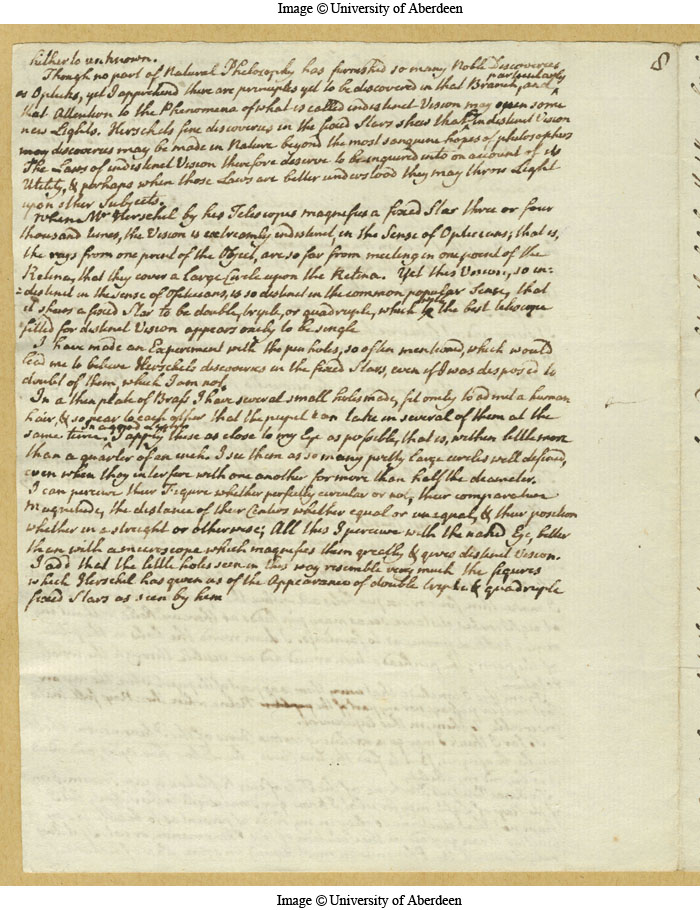 Image © University of Aberdeen
8
hitherto unknown.
Though no part of Natural Philosophy has furnished so many Noble Discoveries
as Opticks, yet I apprehend there are principles yet to be discovered in that Branch, and
particularly
that Attention to the Phenomena of what is called indistinct Vision may open some
new Lights. Herschels fine discoveries in the fixed Stars shew that by indistinct Vision
many discoveries may be made in Nature beyond the most sanguine hopes of philosophers
The Laws of indistinct Vision therefore deserve to be enquired into on account of its
Utility, & perhaps when those Laws are better understood they may throw Light
upon other Subjects.
When Mr Herschel by his Telescopes magnifies a fixed Star three or four
thousand times, the Vision is extreamly indistinct, in the Sense of Opticians; that is,
the rays from one point of the Object, are so far from meeting in one point of the
Retina, that they cover a large Circle upon the Retina. Yet this Vision, so in-
=distinct in the sense of Opticians, is so distinct in the common popular Sense, that
it shews a fixed Star to be double, triple, or quadruple, which by the best telescope
fitted for distinct Vision appears onely to be single
I have made an Experiment with the pin holes, so often mentioned, which would
lead me to believe Herschels discoveries in the fixed Stars, even if I was disposed to
doubt of them, which I am not.
In a thin plate of Brass I have several small holes made, fit onely to admit a human
hair, & so near to each other that the pupil can take in several of them at the
same time. In a good Light I apply these as close to my Eye as possible, that is, within little more
than a quarter of an inch. I see them as so many pretty large circles well defined,
even when they interfere with one another for more than half the diameter.
I can perceive their Figure whether perfectly circular or not, their comparative
Magnitude, the distance of their Centers whether equal or unequal, & their position
whether in a streight or otherwise; All this I perceive with the naked Eye, better
than with a microscope which magnifies them greatly & gives distinct Vision.
I add that the little holes seen in this way resemble very much the figures
which Herschel has given us of the Appearance of double triple & quadruple
fixed Stars as seen by him
Image © University of Aberdeen